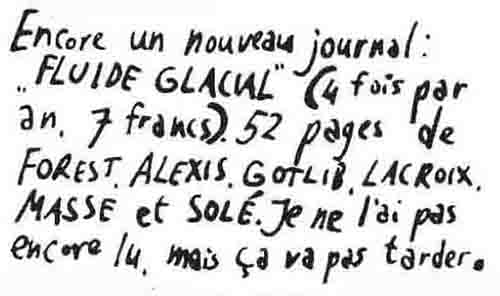 Encore un nouveau journal:
"FLUIDE GLACIAL" (4 fois par
an, 7 francs). 52 pages de
FOREST, ALEXIS, GOTLIB, LACROIX,
MASSE et SOLÉ. Je ne l'ai pas
encore lu, mais ça va pas tarder.